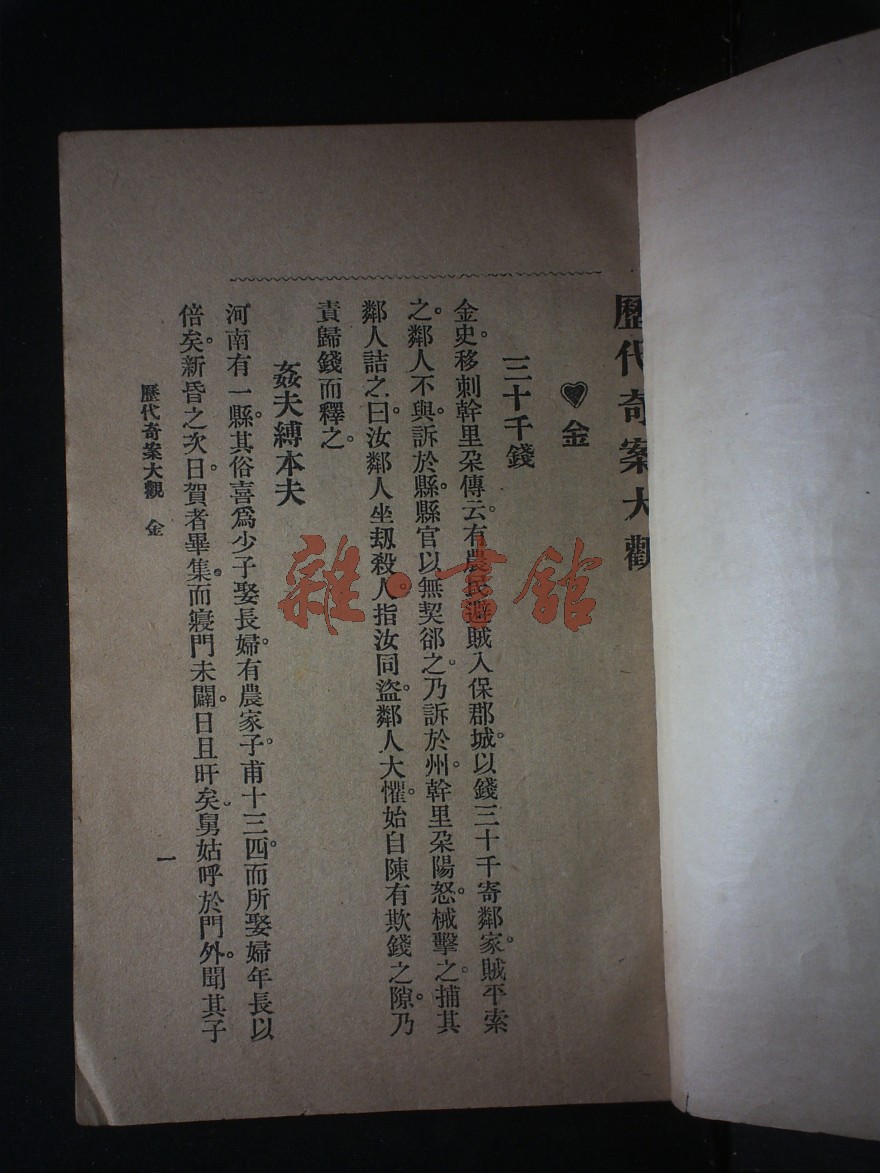 歷代奇案大觀
金
三十千錢
金史移刺幹里朶傳云。有農民避賊入保郡城。以錢三十千寄鄰家。賊平索
之。鄰人不與。訴於縣。縣官以無契郤之。乃訴於州。幹里朶陽怒。械擊之。捕其
鄰人詰之曰。汝鄰人坐刼殺人。指汝同盜。鄰人大懼。始自陳有欺錢之隙。乃
責歸錢而釋之。
姦夫縛本夫
河南有一縣。其俗喜爲少子娶長婦。有農家子。甫十三四。而所娶婦年長以
倍矣。新昏之次日。賀者畢集。而寢門未闢。日且旰矣。舅姑呼於門外。聞其子
歷代奇案大觀 金
一
雜·書館